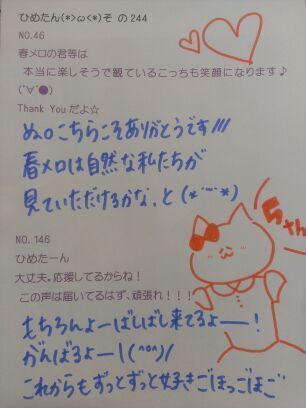 ひめたん(*>ω<*)そ の244
NO.46
春メロの君等は
本当に楽しそうで観ているこっちも笑顔になります♪
(*´∀`●)
Thank Youだよ☆
ぬ。こちらこそありがとうです///
春メロは自然な私たちが
見ていただけるかな、と(*´ー`*)
NO.146
ひめたーん
大丈夫。応援してるからね！
この声は届いてるはず、頑張れ！！！
もちろんよーばしばし来てるよー！
がんばるよー\(^o^)/
これからもずっとずっと好きごほっごほご